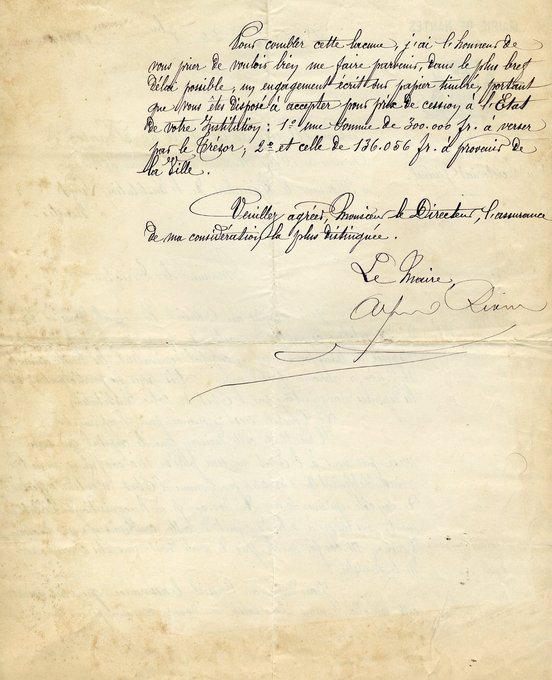 Pour combler cette lacune, j'ai l'honneur de
vous prier de vouloir bien me faire parvenir, dans le plus bref
délai possible, un engagement écrit sur papier timbré, portant
que vous êtes disposé à accepter pour prix de cession à l'État
de votre Institution: 1º une somme de 300.000 fr. à verser
par le Trésor; 2º et celle de 136.056 fr. à provenir de
la Ville.
Veuillez agréer, Monsieur le Directeur, l'assurance
de ma considération la plus distinguée.
Le Maire,